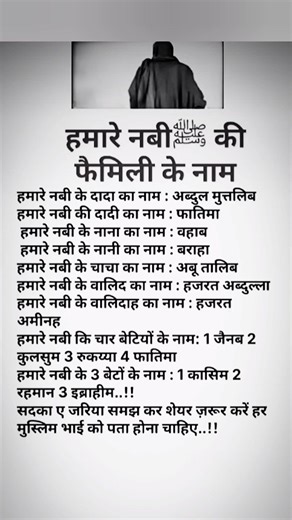 हमारे नबीﷺ की
फैमिली के नाम
हमारे नबी के दादा का नाम : अब्दुल मुत्तलिब
हमारे नबी की दादी का नाम : फातिमा
हमारे नबी के नाना का नाम : वहाब
हमारे नबी के नानी का नाम : बराहा
हमारे नबी के चाचा का नाम : अबू तालिब
हमारे नबी के वालिद का नाम : हजरत अब्दुल्ला
हमारे नबी के वालिदाह का नाम : हजरत
अमीनह
हमारे नबी कि चार बेटियों के नाम: 1 जैनब 2
कुलसुम 3 रुकय्या 4 फातिमा
हमारे नबी के 3 बेटों के नाम : 1 कासिम 2
रहमान 3 इब्राहीम..!!
सदका ए जरिया समझ कर शेयर ज़रूर करें हर
मुस्लिम भाई को पता होना चाहिए..!!